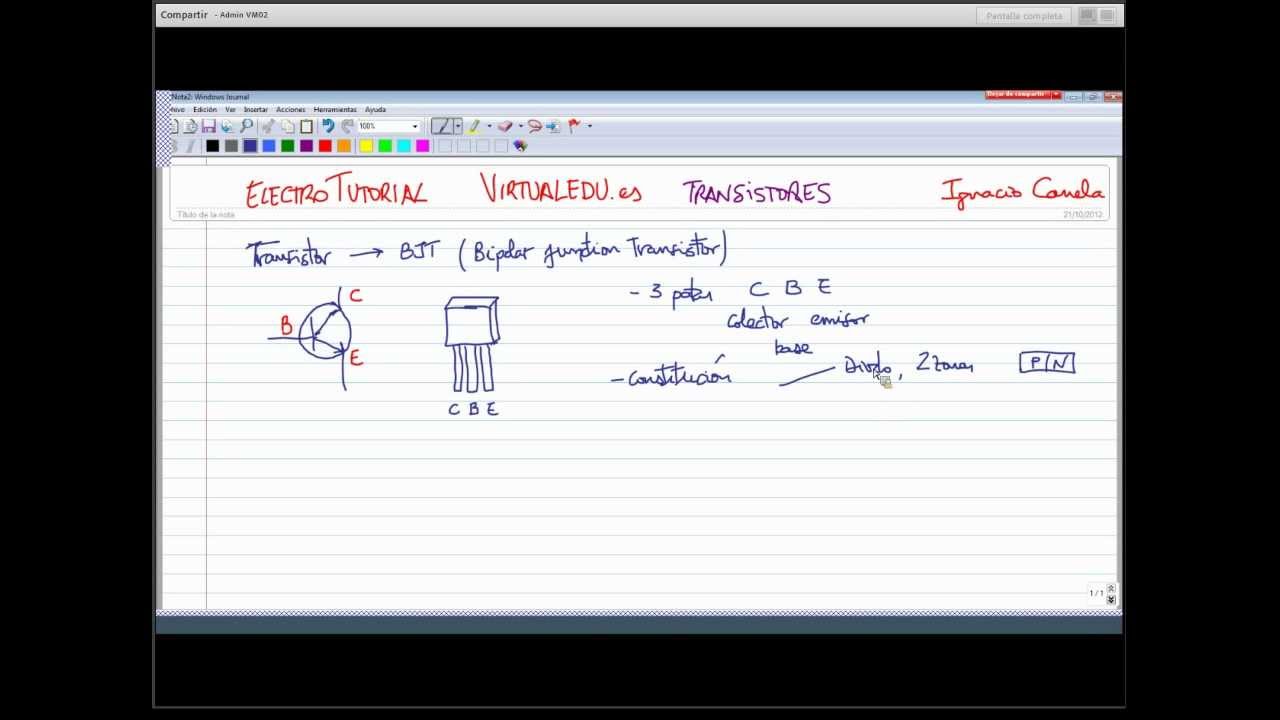 Compartir - Admin VM02
Pantalla completa
Nota2: Windows Journal
Dejar de compartir
hivo Edición Ver Insertar Acciones Herramientas Ayuda
100%
ELECTROTUTORIAL VIRTUALEDU.es TRANSISTORES Ignacio Canela
Título de la nota
21/10/2012
Transistor → BJT (Bipolar junction Transistor)
- 3 patas C B E
colector emisor
base
C
B
E
- constitución
Diodo, 2 zonas P N
C B E
1 / 1